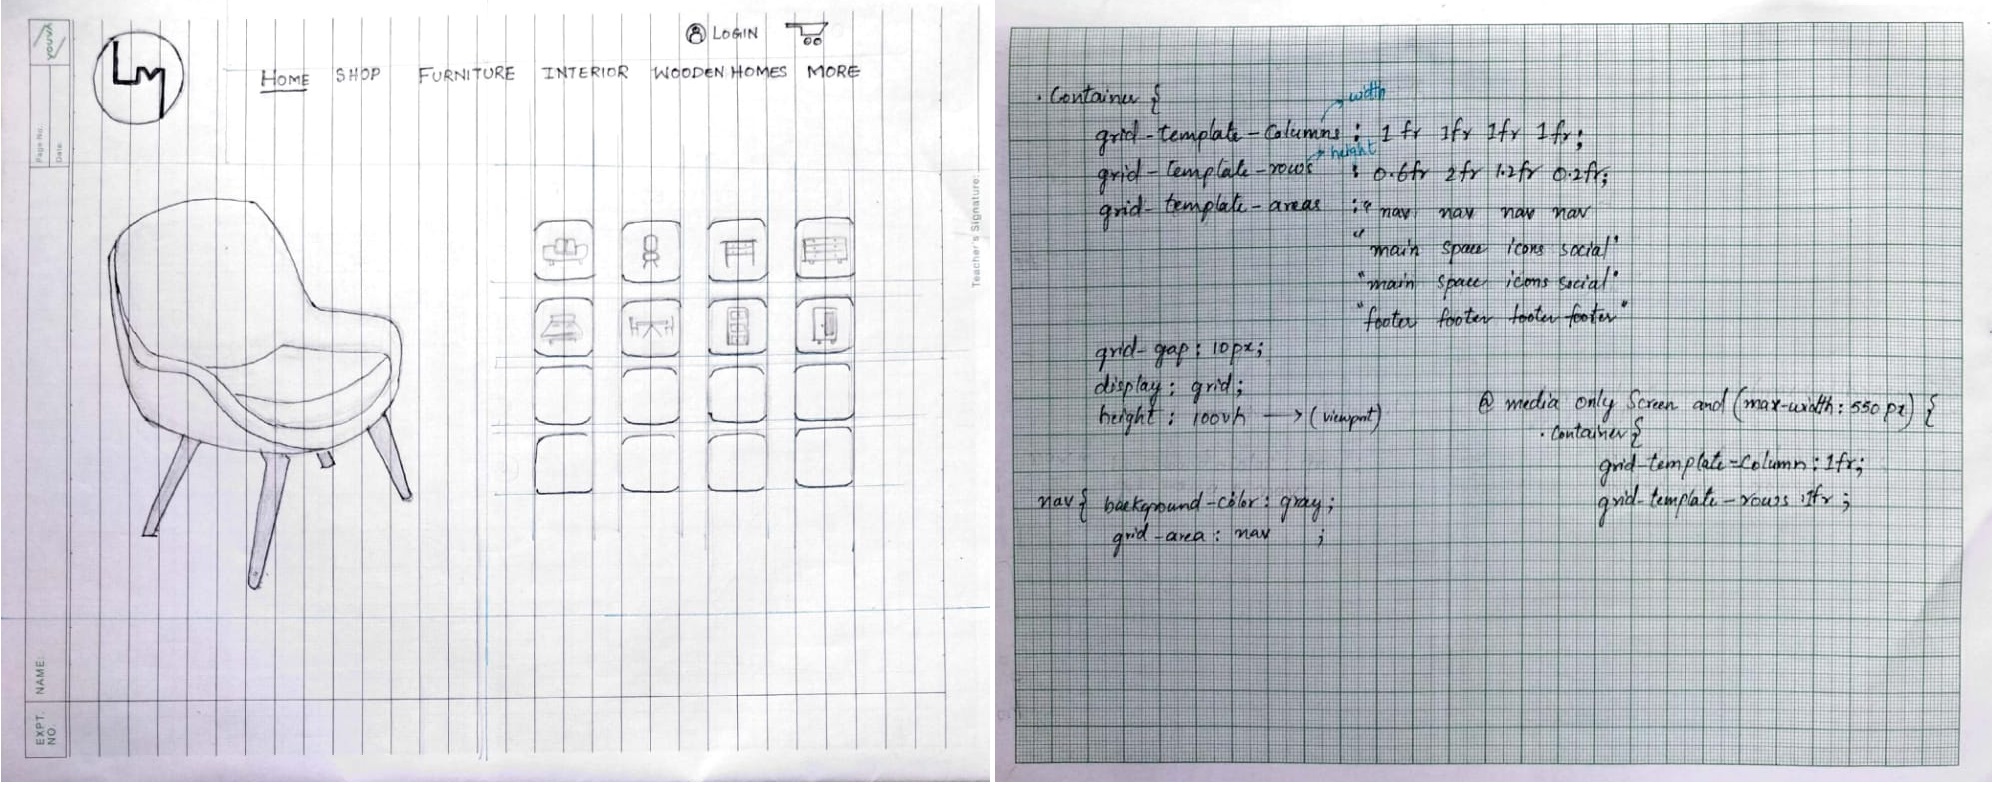 youva
Page No.
Date:
LM
LOGIN
HOME SHOP FURNITURE INTERIOR WOODEN HOMES MORE
Teacher's Signature:
EXPT. NAME:
NO.
.Container {
width
grid-template-Columns : 1 fr 1fr 1fr 1fr;
height
grid-template-rows : 0.6fr 2fr 1.2fr 0.2fr;
grid-template-areas : "nav nav nav nav
"main space icons social"
"main space icons social"
"footer footer footer footer"
grid-gap: 10px;
display: grid;
height: 100vh → (viewport)
nav{ background-color: gray;
grid-area: nav ;
@ media only Screen and (max-width: 550px) {
.Container{
grid-template-Column: 1fr;
grid-template-rows :1fr ;